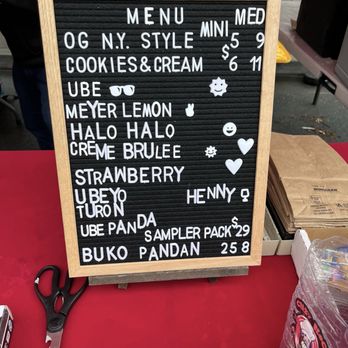 MENU MINI MED
OG N.Y. STYLE 5 9
COOKIES & CREAM $6 11
UBE
MEYER LEMON
HALO HALO
CREME BRULEE
STRAWBERRY
UBEYO HENNY
TURON
UBE PANDA
SAMPLER PACK $29
BUKO PANDAN 258